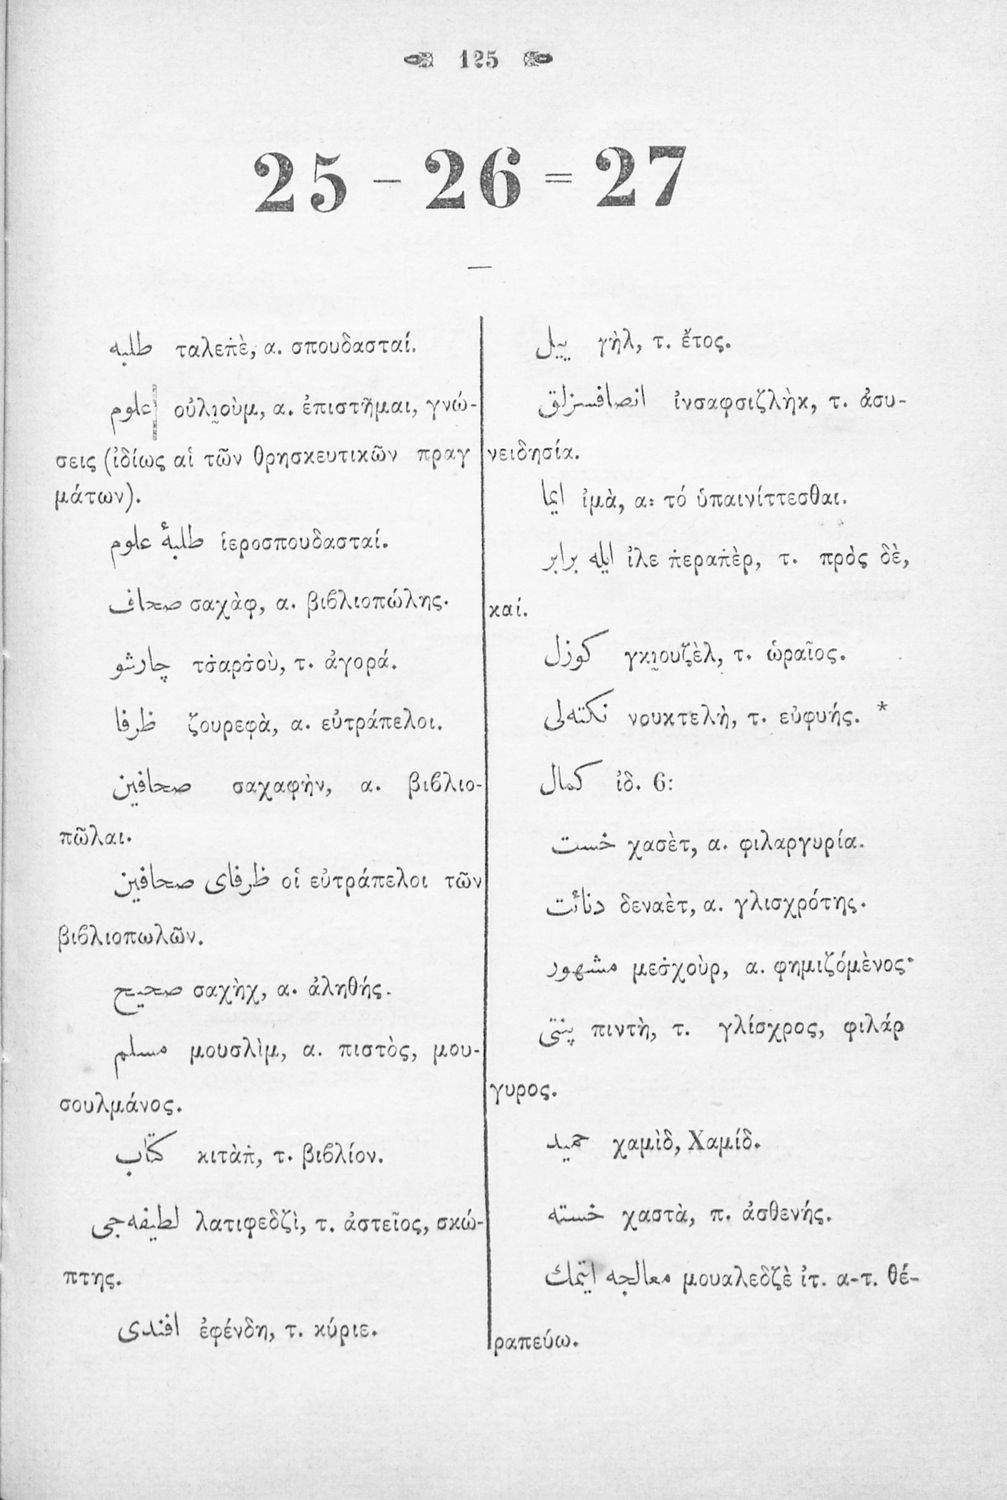 125
25 – 26 = 27
طلبه ταλεπὲ, α. σπουδασταί.
علوم οὐλιοὺμ, α. ἐπιστῆμαι, γνώ-
σεις (ἰδίως αἱ τῶν θρησκευτικῶν πραγ
μάτων).
طلبهٔ علوم ἱεροσπουδασταί.
صحاف σαχὰφ, α. βιβλιοπώλης.
چارشو τσαρσοὺ, τ. ἀγορά.
ظرفا ζουρεφὰ, α. εὐτράπελοι.
صحافين σαχαφὴν, α. βιβλιο-
πῶλαι.
ظرفای صحافين οἱ εὐτράπελοι τῶν
βιβλιοπωλῶν.
صحيح σαχὴχ, α. ἀληθής.
مسلم μουσλὶμ, α. πιστὸς, μου-
σουλμάνος.
كتاب κιτὰπ, τ. βιβλίον.
لطيفه‌جی λατιφεδζὶ, τ. ἀστεῖος, σκώ-
πτης.
افندی ἐφένδη, τ. κύριε.
ييل γὴλ, τ. ἔτος.
انصافسزلق ἰνσαφσιζλὴκ, τ. ἀσυ-
νειδησία.
ايما ἰμὰ, α: τό ὑπαινίττεσθαι.
ايله برابر ἰλε περαπὲρ, τ. πρὸς δὲ,
καί.
كوزل γκιουζὲλ, τ. ὡραῖος.
نكته‌لی νουκτελὴ, τ. εὐφυής. *
كمال ἰδ. 6:
خست χασὲτ, α. φιλαργυρία.
دنائت δεναὲτ, α. γλισχρότης.
مشهور μεσχοὺρ, α. φημιζόμενος·
پنتی πιντὴ, τ. γλίσχρος, φιλάρ
γυρος.
حميد χαμὶδ, Χαμίδ.
خسته χαστὰ, π. ἀσθενής.
معالجه ايتمك μουαλεδζὲ ἰτ. α-τ. θέ-
ραπεύω.